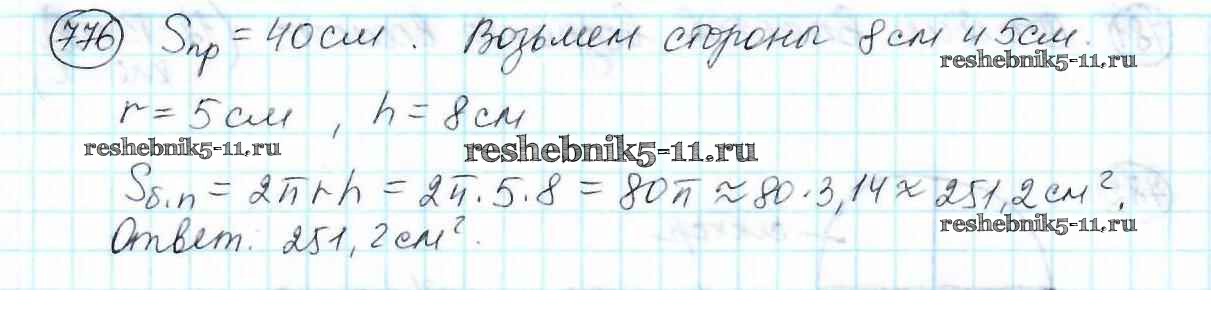 776 Sпр = 40 см. Возьмем стороны 8 см и 5 см.
reshebnik5-11.ru
r = 5 см, h = 8 см
reshebnik5-11.ru
reshebnik5-11.ru
Sб.п = 2πrh = 2π·5·8 = 80π ≈ 80·3,14 ≈ 251,2 см².
reshebnik5-11.ru
Ответ. 251,2 см².